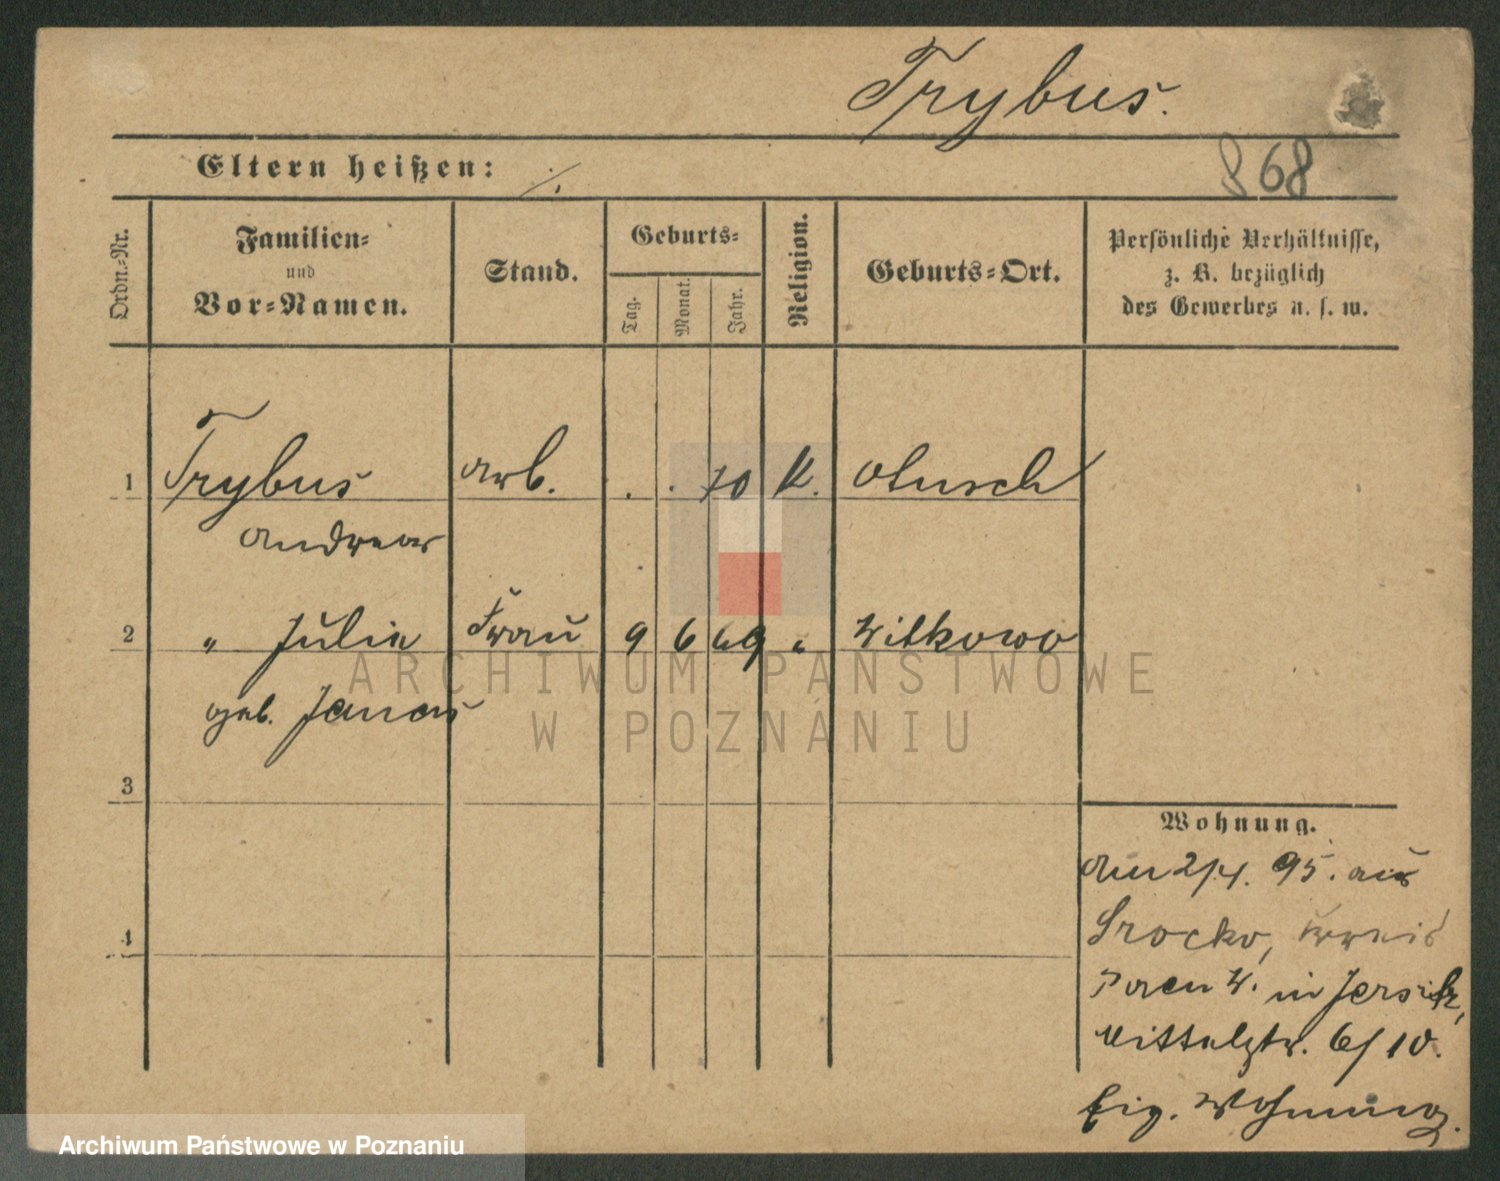 Trybus.
Eltern heißen: ./.
868
Ordn.-Nr.
Familien-
und
Vor-Namen.
Stand.
Geburts-
Tag.
Monat.
Jahr.
Religion.
Geburts-Ort.
Persönliche Verhältnisse,
z. B. bezüglich
des Gewerbes u. s. w.
1 Trybus Arb. . . 70 K. Otusch
Andreas
2 " Julie Frau 9 6 69 " Witkowo
geb. Janas
3
4
Wohnung.
Am 2/4. 95. aus
Srocko, Kreis
Posen W. in Jersitz,
6/10.
Eig. Wohnung.
ARCHIWUM PAŃSTWOWE
W POZNANIU
Archiwum Państwowe w Poznaniu